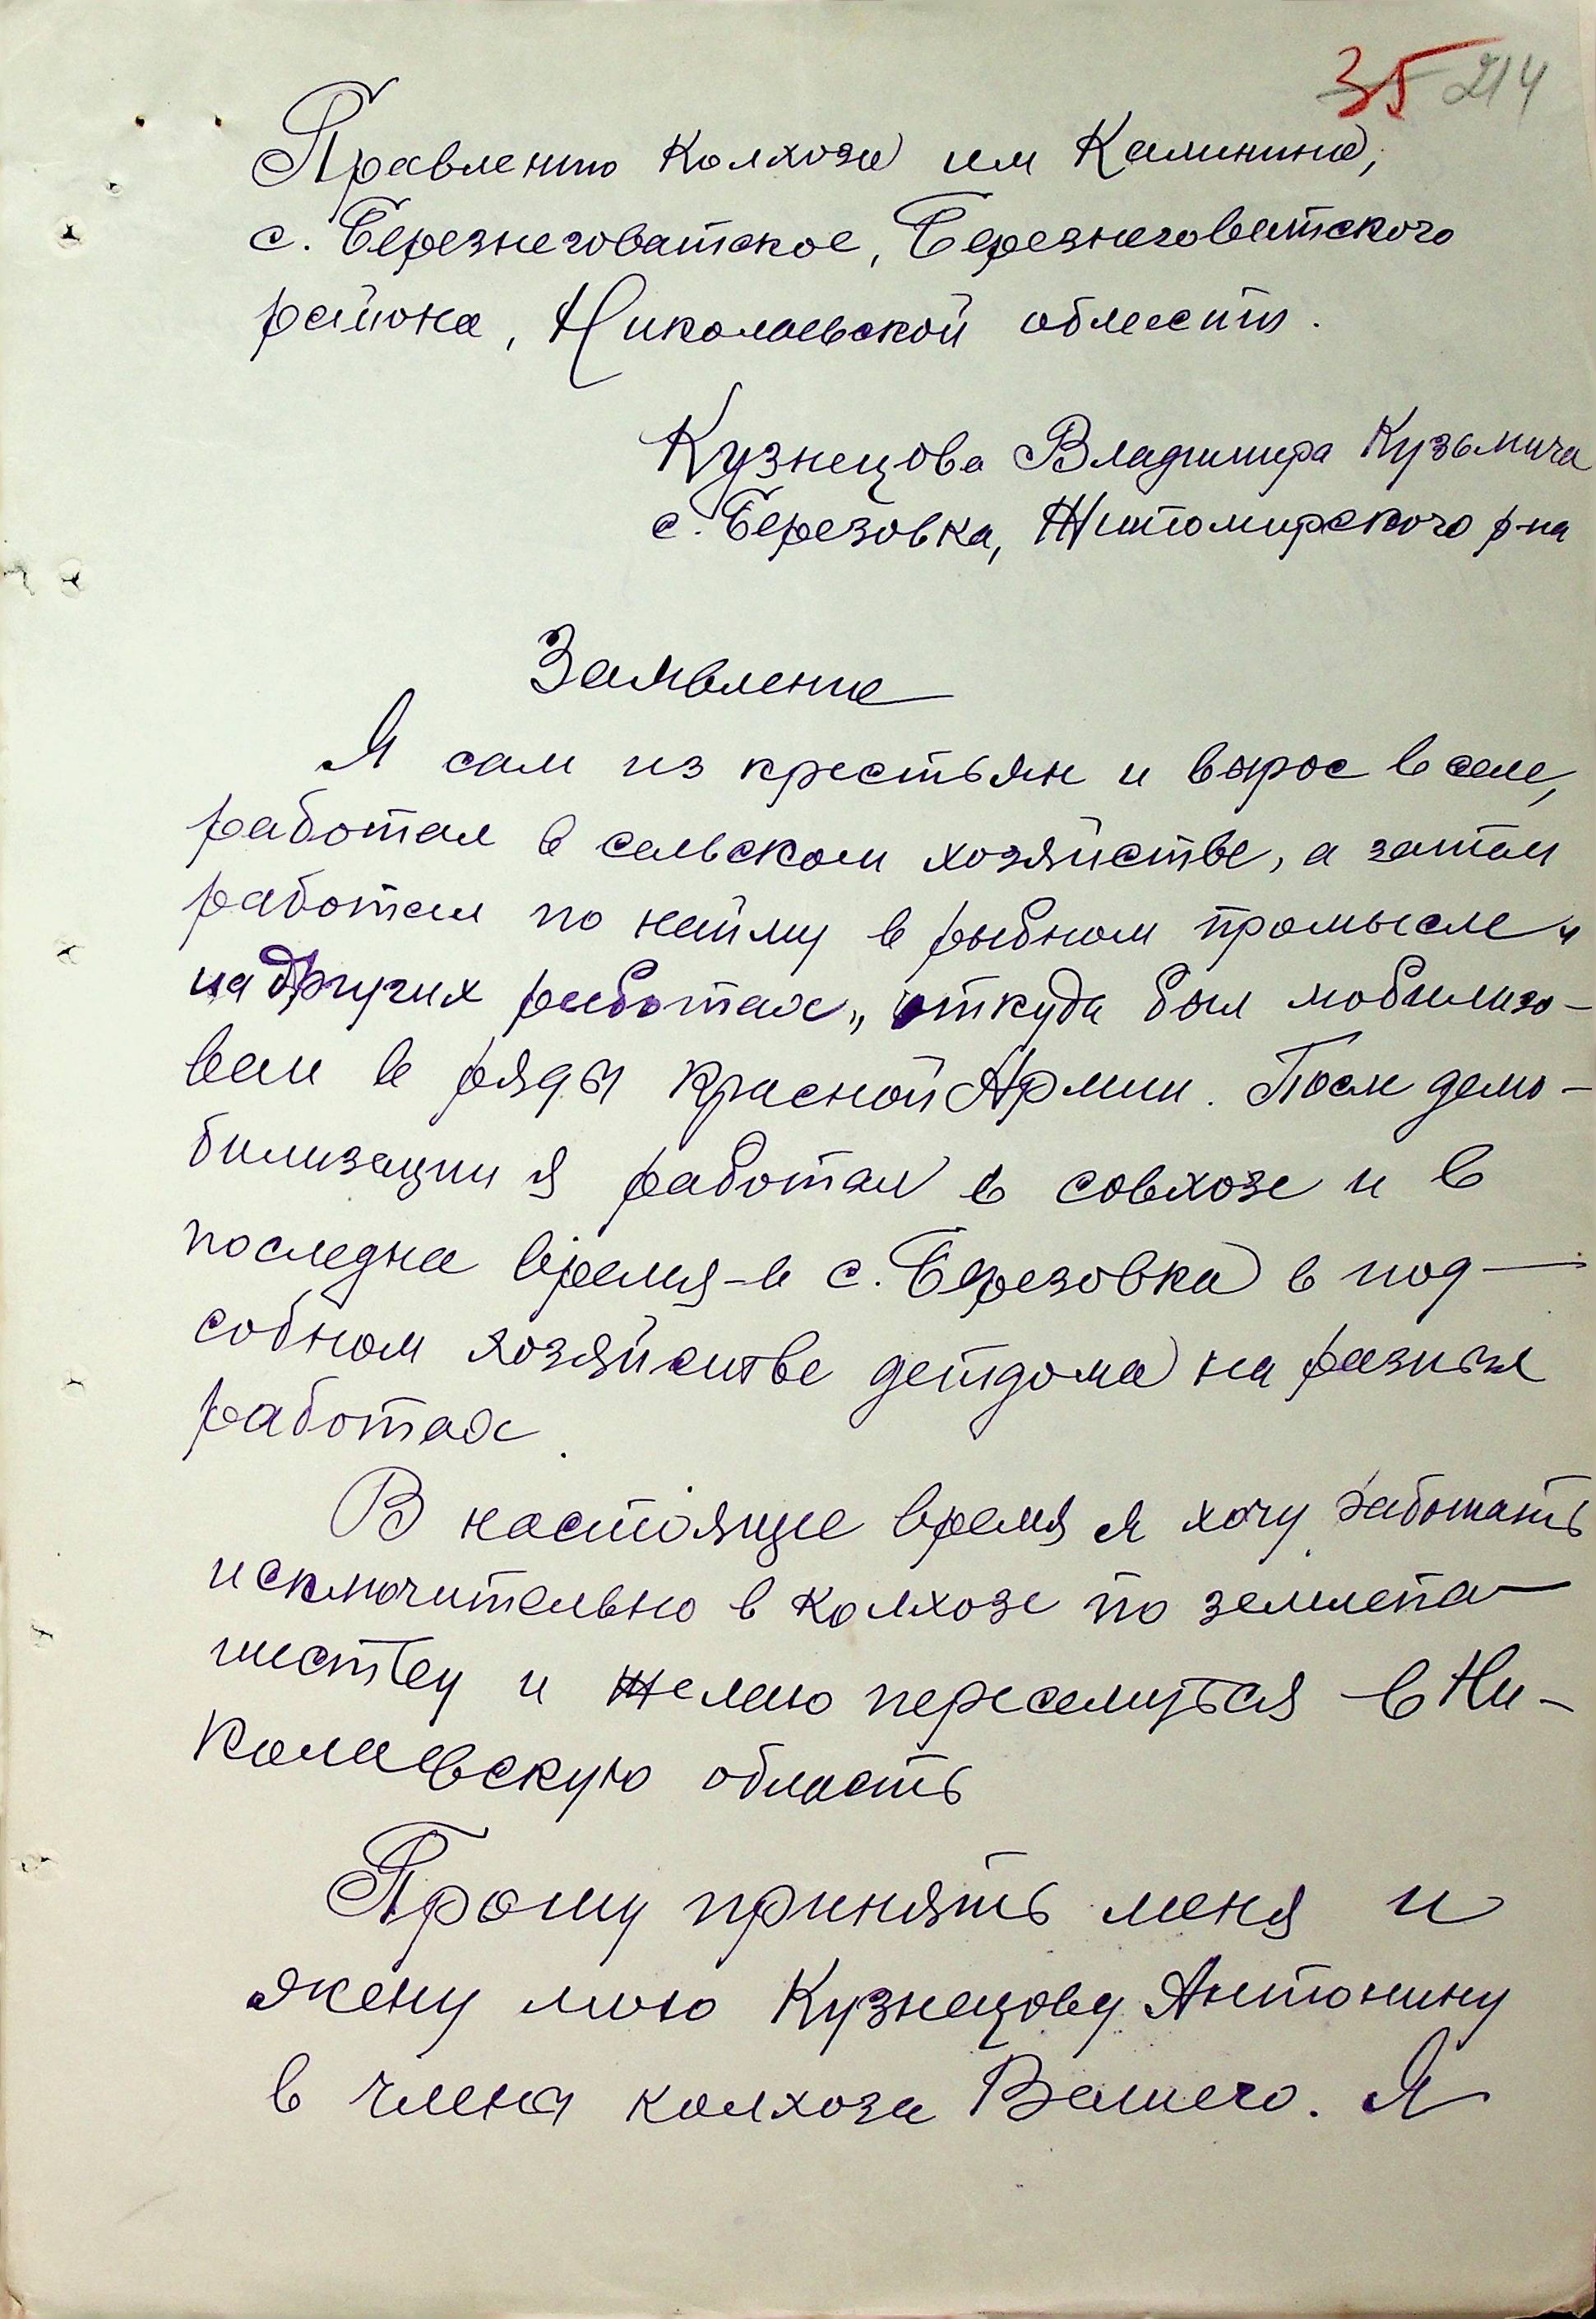 35 214
Правлению Колхоза им Калинина,
с. Березнеговатское, Березнеговатского
района, Николаевской области.
Кузнецова Владимира Кузьмича
с. Березовка, Житомирского р-на
Заявление
Я сам из крестьян и вырос в селе,
работал в сельском хозяйстве, а затем
работал по найму в рыбном промысле и
на других работах, откуда был мобилизо-
ван в ряды Красной Армии. После демо-
билизации я работал в совхозе и в
последнее время - в с. Березовка в под-
собном хозяйстве детдома на разных
работах.
В настоящее время я хочу работать
исключительно в колхозе по землепа-
шеству и желаю переселиться в Ни-
колаевскую область
Прошу принять меня и
жену мою Кузнецову Антонину
в члены колхоза Вашего. Я